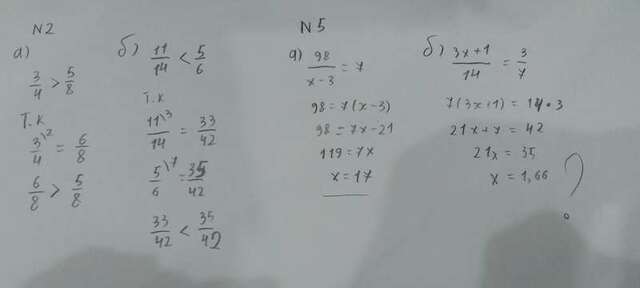 N2
а)
3/4 > 5/8
т.к
3\2/4 = 6/8
6/8 > 5/8
б) 11/14 < 5/6
т.к
11\3/14 = 33/42
5\7/6 = 35/42
33/42 < 35/42
N5
а) 98/x-3 = 7
98 = 7(x-3)
98 = 7x-21
119 = 7x
x = 17
б) 3x+1/14 = 3/7
7(3x+1) = 14·3
21x+7 = 42
21x = 35
x = 1,66
?